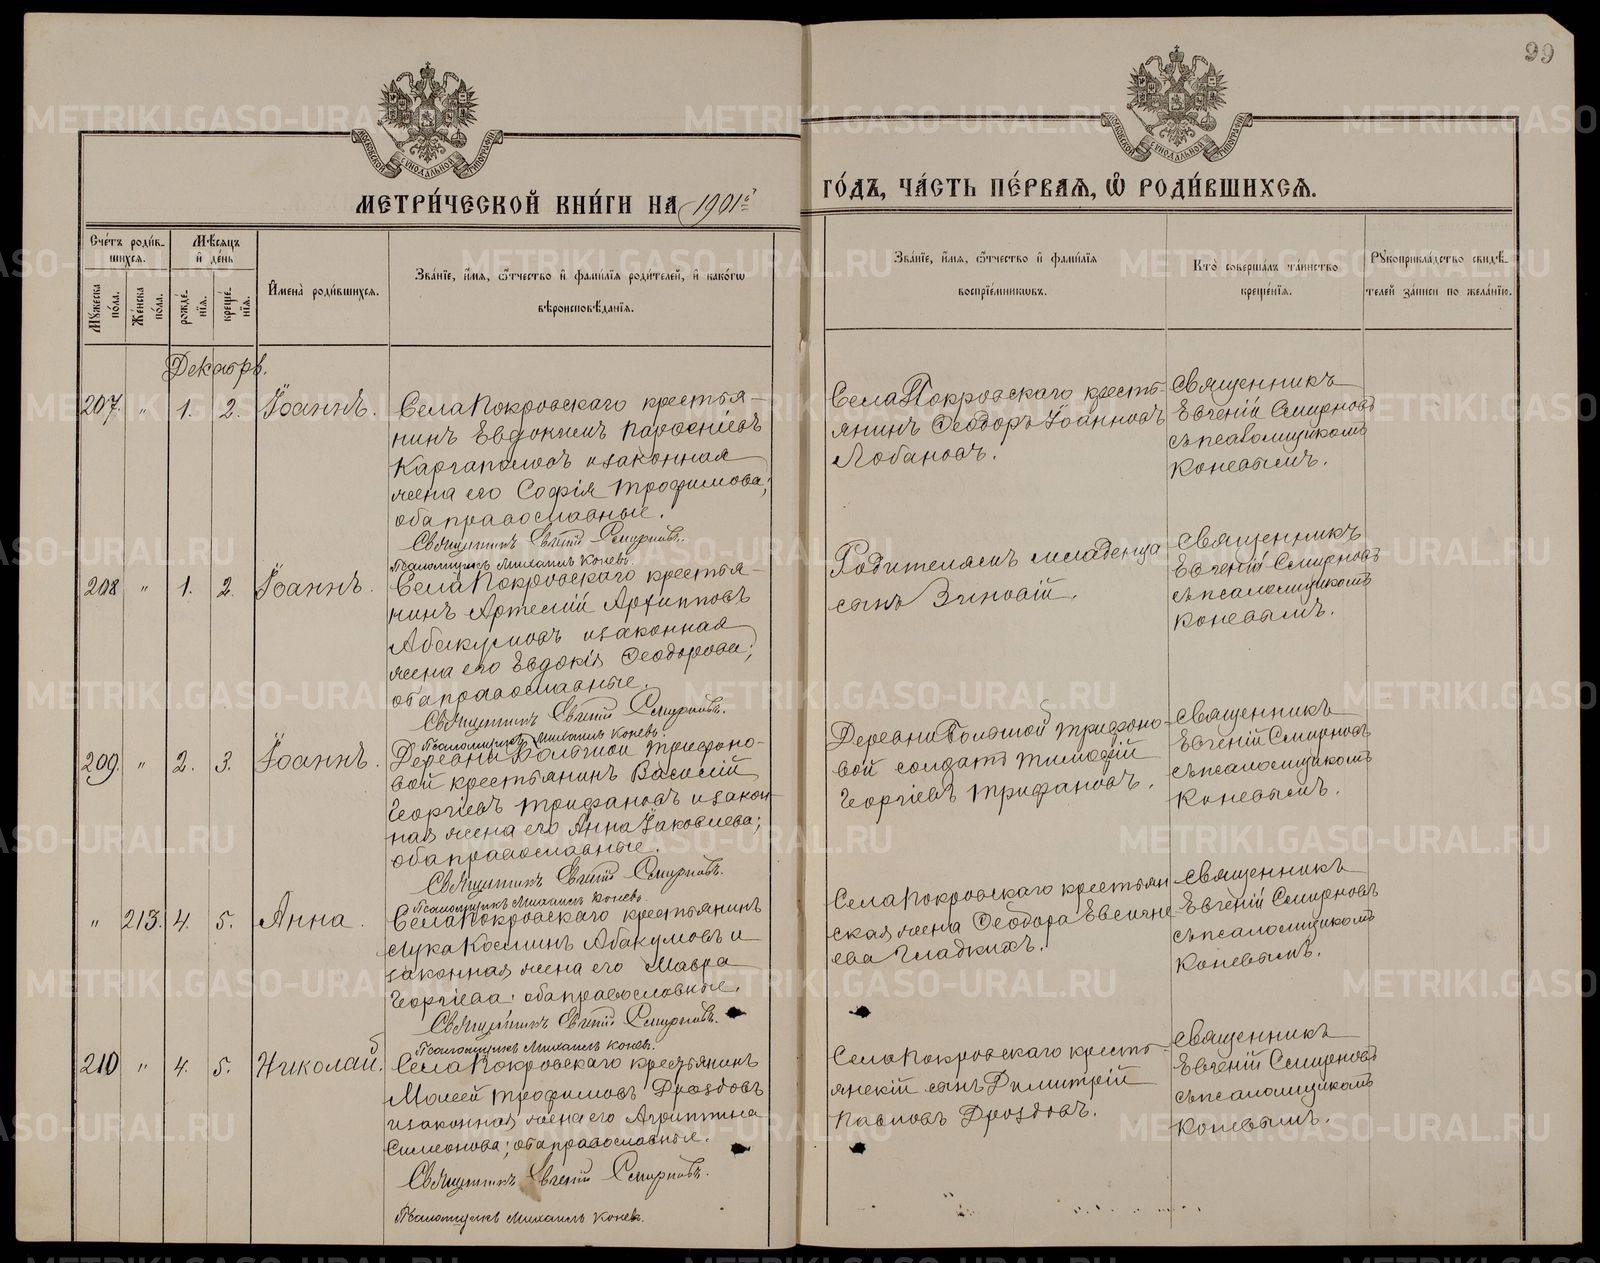 99
МОСКОВСКОЙ СѴНОДАЛЬНОЙ ТИПОГРАФІИ
МОСКОВСКОЙ СѴНОДАЛЬНОЙ ТИПОГРАФІИ
МЕТРИ́ЧЕСКОЙ КНИ́ГИ НА 1901й
ГО́ДЪ, ЧА́СТЬ ПЕ́РВАѦ, Ѡ҆ РОДИ́ВШИХСѦ.
Сче́тъ роди́в-
шихсѧ.
Мѹ́жеска по́ла.
Же́нска по́ла.
Мѣ́сѧцъ
и҆ де́нь
рожде́-
нїѧ.
креще́-
нїѧ.
И҆мена̀ роди́вшихсѧ.
Зва́нїе, и҆́мѧ, ѻ҆́тчество и҆ фами́лїѧ роди́телей, и҆ како́гѡ
вѣроисповѣ́данїѧ.
Зва́нїе, и҆́мѧ, ѻ҆́тчество и҆ фами́лїѧ
воспрїе́мникѡвъ.
Кто̀ соверша́лъ та́инство
креще́нїѧ.
Рꙋкоприкла́дство свидѣ́-
телей за́писи по жела́нїю.
Декабрь.
207. " 1. 2. Іоаннъ.
Села Покровскаго крестья-
нинъ Евдокимъ Парѳеніевъ
Каргаполовъ и законная
жена его Софія Трофимова;
оба православные.
Священникъ Евгеній Смирновъ.
Псаломщикъ Михаилъ Коневъ.
Села Покровскаго кресть-
янинъ Ѳеодоръ Іоанновъ
Лобановъ.
Священникъ
Евгеній Смирновъ
съ псаломщикомъ
Коневымъ.
208 " 1. 2. Іоаннъ.
Села Покровскаго крестья-
нинъ Артемій Архипповъ
Абакумовъ и законная
жена его Евдокія Ѳеодорова;
оба православные.
Священникъ Евгеній Смирновъ.
Псаломщикъ Михаилъ Коневъ.
Родителямъ младенца
сынъ Зиновій.
Священникъ
Евгеній Смирновъ
съ псаломщикомъ
Коневымъ.
209. " 2. 3. Іоаннъ.
Деревни Большой Трифоно-
вой крестьянинъ Василій
Георгіевъ Трифановъ и закон-
ная жена его Анна Іаковлева;
оба православные.
Священникъ Евгеній Смирновъ.
Псаломщикъ Михаилъ Коневъ.
Деревни Большой Трифоно-
вой солдатъ Тимоѳей
Георгіевъ Трифановъ.
Священникъ
Евгеній Смирновъ
съ псаломщикомъ
Коневымъ.
" 213. 4. 5. Анна.
Села Покровскаго крестьянинъ
Лука Косминъ Абакумовъ и
законная жена его Мавра
Георгіева; оба православные.
Священникъ Евгеній Смирновъ.
Псаломщикъ Михаилъ Коневъ.
Села Покровскаго крестьян
ская жена Ѳеодора Евсигне
ева Гладкихъ.
Священникъ
Евгеній Смирновъ
съ псаломщикомъ
Коневымъ.
210 " 4. 5. Николай.
Села Покровскаго крестьянинъ
Моисей Трофимовъ Дроздовъ
и законная жена его Агриппина
Симеонова; оба православные.
Священникъ Евгеній Смирновъ.
Псаломщикъ Михаилъ Коневъ.
Села Покровскаго кресть-
янскій сынъ Димитрій
Павловъ Дроздовъ.
Священникъ
Евгеній Смирновъ
съ псаломщикомъ
Коневымъ.
METRIKI.GASO-URAL.RU